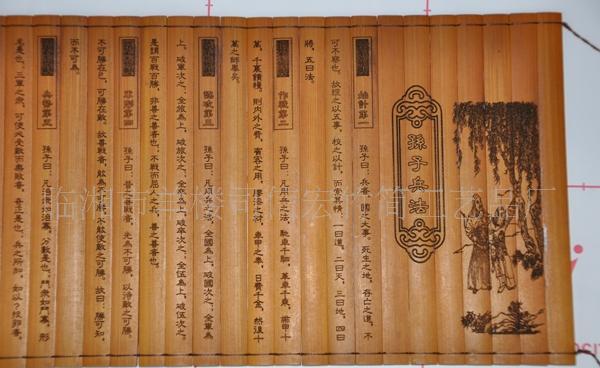 孫子兵法
始計第一　孫子曰：兵者，國之大事。死生之地，存亡之道，不
可不察也。故經之以五事，校之以計，而索其情，一曰道，二曰天，三曰地，四曰
將，五曰法。
作戰第二　孫子曰：凡用兵之法，馳車千駟，革車千乘，帶甲十
萬，千里饋糧。則內外之費，賓客之用，膠漆之材，車甲之奉，日費千金，然後十
萬之師舉矣。
謀攻第三　孫子曰：凡用兵之法，全國為上，破國次之；全軍為
上，破軍次之；全旅為上，破旅次之；全卒為上，破卒次之；全伍為上，破伍次之。
是謂百戰百勝，非善之善者也；不戰而屈人之兵，善之善者也。
軍形第四　孫子曰：昔之善戰者，先為不可勝，以待敵之可勝。
不可勝在己，可勝在敵。故善戰者，能為不可勝，不能使敵之可勝。故曰：勝可知，
而不可為。
兵勢第五　孫子曰：凡治衆如治寡，分數是也；鬥衆如鬥寡，形
名是也；三軍之衆，可使必受敵而無敗者，奇正是也；兵之所加，如以碬投卵者，
临湘市羊楼司镇宏 简工艺品厂